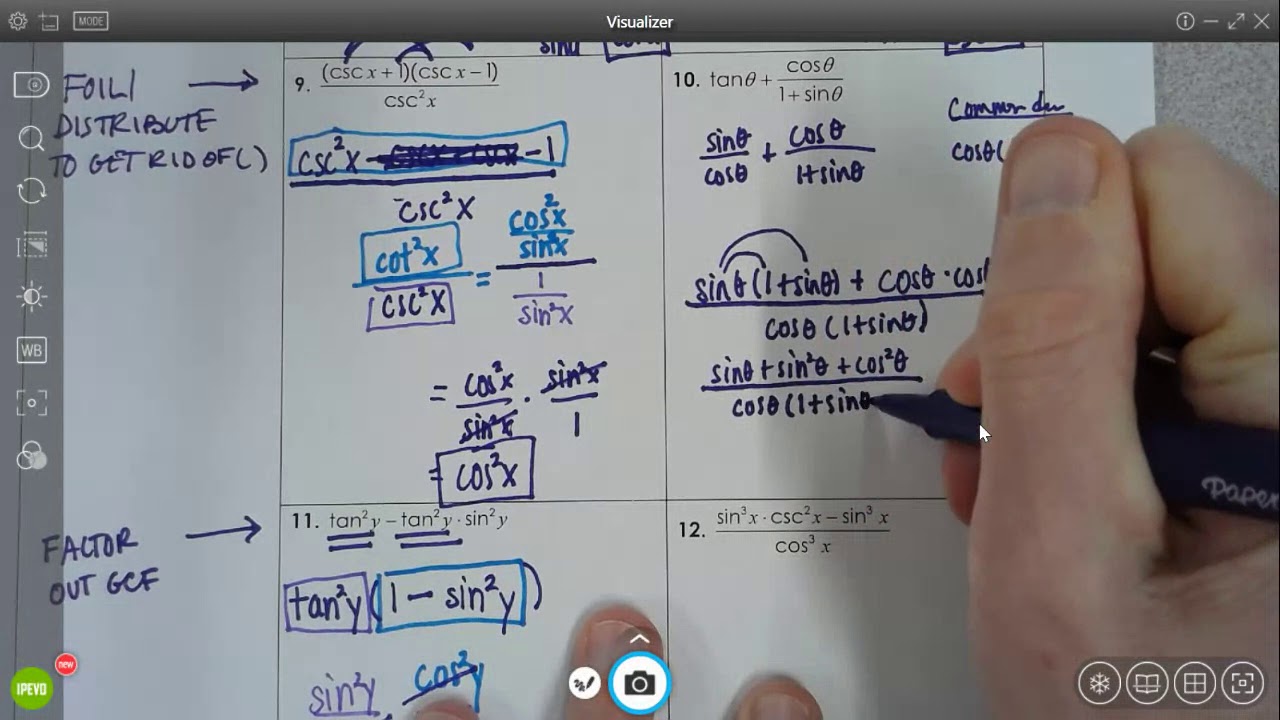 MODE
Visualizer
FOIL/
DISTRIBUTE
TO GET RID OF ( )
9. (csc x + 1)(csc x − 1)
csc²x
csc²x - 1
csc²x
cot²x
csc²x
=
cos²x
sin²x
1
sin²x
= cos²x · sin²x
sin²x 1
= cos²x
10. tanθ + cosθ
1 + sinθ
Common
cosθ(
sinθ + cosθ
cosθ 1+sinθ
sinθ(1+sinθ) + cosθ · cos
cosθ (1+sinθ)
sinθ + sin²θ + cos²θ
cosθ (1+sinθ
FACTOR
OUT GCF
11. tan²y − tan²y · sin²y
tan²y (1 − sin²y)
sin²y cos²y
12. sin³x · csc²x − sin³ x
cos³ x
WB
IPEVO
new
Paper